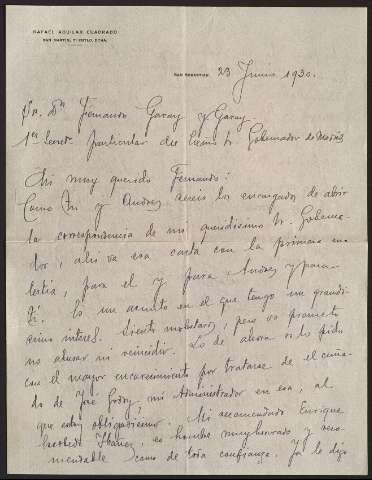 RAFAEL AGUILAR CUADRADO
SAN MARTIN,
SAN SEBASTIAN, 23 Junio 1930.
Sr. Dn. Fernando Garay y Garay
1er Secret. particular del Excmo Sr. Gobernador de
Mi muy querido Fernando:
Como tu y Andres sereis los encargados de abrir
la correspondencia de mi queridísimo Sr. Goberna-
dor, ahi va esa carta con la primera mo-
lestia, para el y para Andres y para
Ti. Es un asunto en el que tengo un grandi-
simo interes. Siento molestaros, pero os prometo
no abusar ni reincidir. Lo de ahora os lo pido
con el mayor encarecimiento por tratarse de el cuña-
do de Jose Godoy, mi Administrador en esa, al
que estoy obligadisimo. Mi recomendado Enrique
Ibañez, es hombre muy honrado y reco-
mendable como de toda confianza. Ya le digo